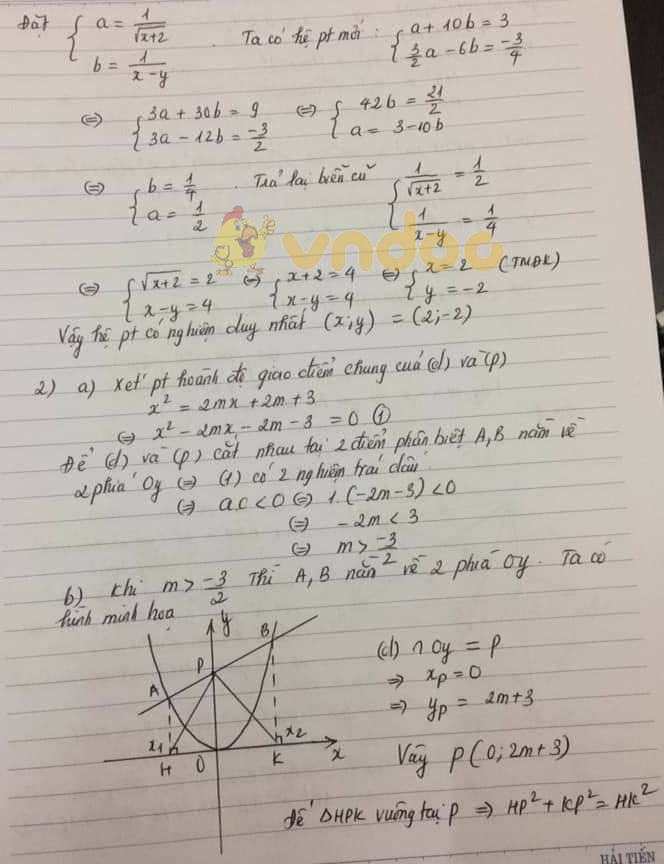 Đặt { a = 1/√(x+2) ; b = 1/(x-y) . Ta có hệ pt mới : { a + 10b = 3 ; 3/2 a - 6b = -3/4
(=) { 3a + 30b = 9 ; 3a - 12b = -3/2 (=) { 42b = 21/2 ; a = 3-10b
(=) { b = 1/4 ; a = 1/2 . Trả lại biến cũ { 1/√(x+2) = 1/2 ; 1/(x-y) = 1/4
vndoc
(=) { √(x+2) = 2 ; x-y = 4 (=) { x+2 = 4 ; x-y = 4 (=) { x = 2 ; y = -2 (TMĐK)
Vậy hệ pt có nghiệm duy nhất (x;y) = (2;-2)
2) a) Xét pt hoành độ giao điểm chung của (d) và (p)
x² = 2mx + 2m + 3
(=) x² - 2mx - 2m - 3 = 0 ①
Để (d) và (p) cắt nhau tại 2 điểm phân biệt A, B nằm về
2 phía Oy (=) (1) có 2 nghiệm trái dấu
(=) ac < 0 (=) 1.(-2m-3) < 0
(=) -2m < 3
(=) m > -3/2
b) Khi m > -3/2 Thì A, B nằm về 2 phía Oy. Ta có
hình minh hoạ
y
B
P
A
x1
x2
H
O
K
x
(d) ∩ Oy = P
=> xp = 0
=> yp = 2m+3
Vậy P(0; 2m+3)
Để ΔHPK vuông tại P => HP² + KP² = HK²
HẢI TIẾN